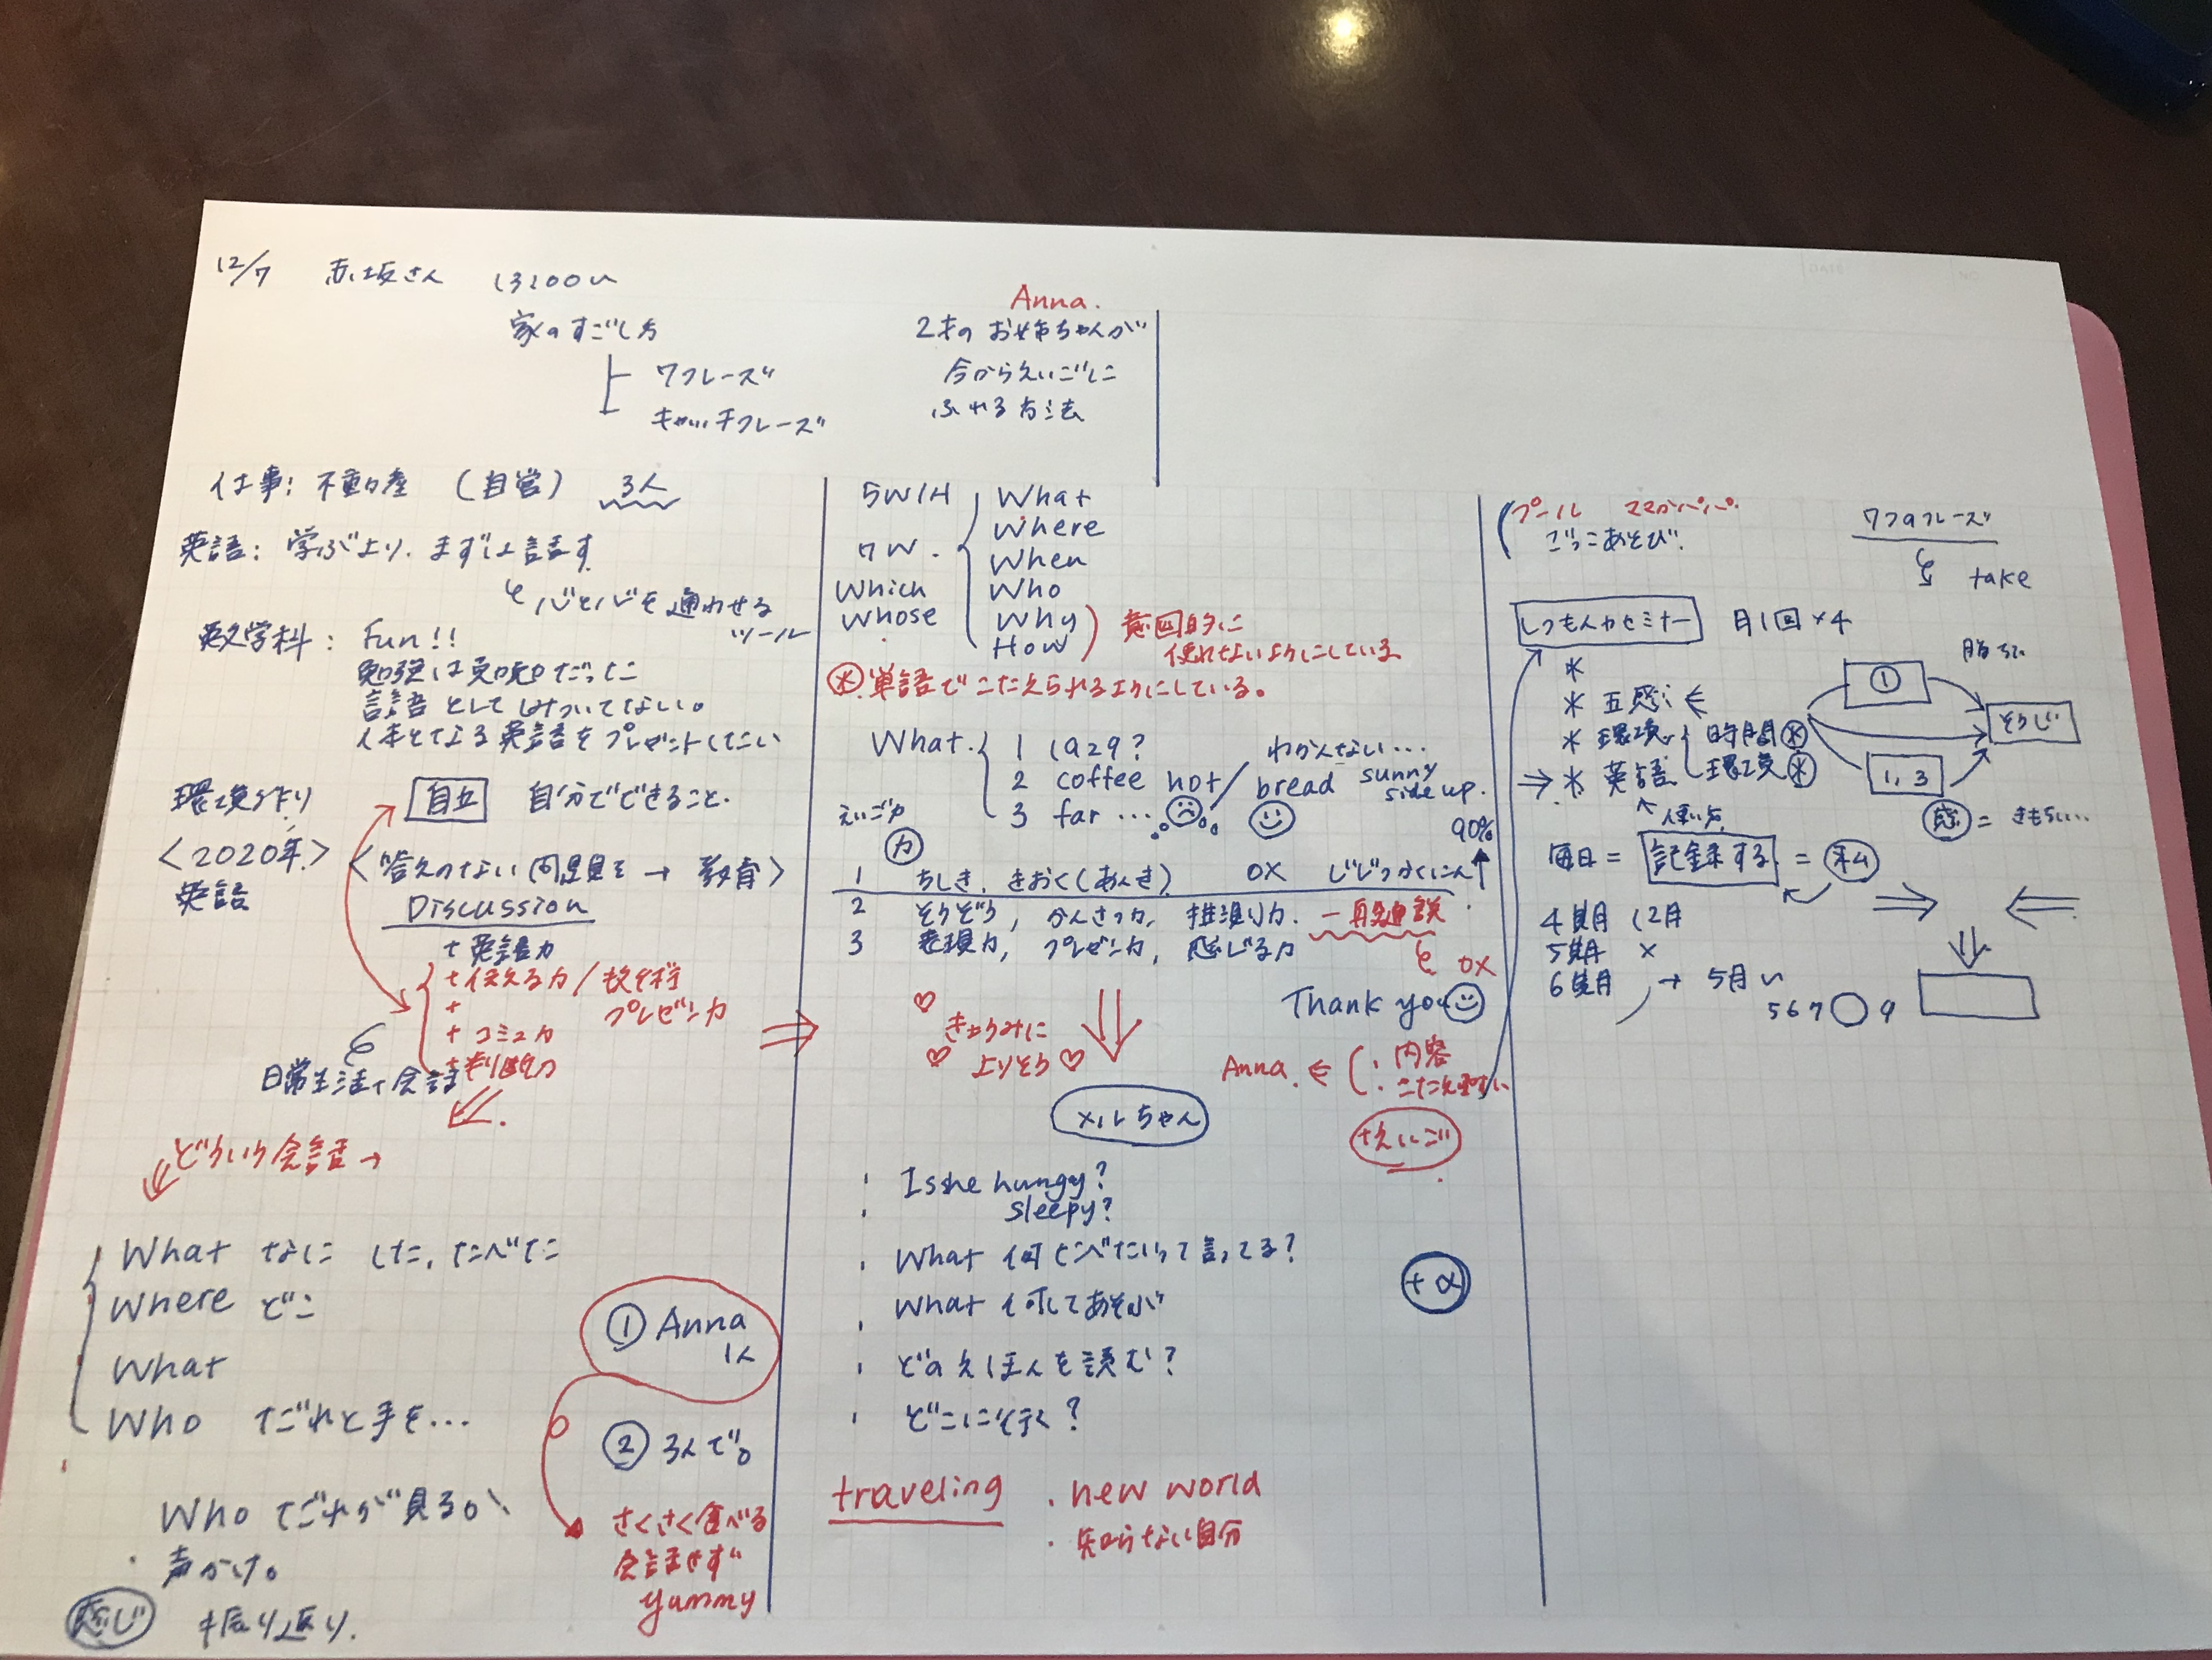 12/7 赤坂さん
家のすごし方
7フレーズ
キャッチフレーズ
Anna.
2才のお姉ちゃんが
今からえいごに
ふれる方法
仕事: 不動産 (自営) 3人
英語: 学ぶより、まずは話す
心と心を通わせる
ツール
英文学科: Fun!!
勉強は
言語としてみついてない。
英語をプレゼントしたい
環境作り
<2020年>
英語
自立 自分でできること.
<答えのない問題を → 教育>
Discussion
+ 英語力
+ 伝える力/
+ プレゼン力
+ コミュ力
日常生活で会話
どういう会話→
What なに した, たべた
Where どこ
What
Who だれと手を...
Who だれが見る。
声かけ。
感じ 振り返り.
① Anna
1人
② 3人で。
さくさく食べる
会話せず
yummy
5W1H
7W.
Which
Whose
What
Where
When
Who
Why
How
意図的に
使わせないようにしている
単語でこたえられるようにしている。
What. 1 1929?
2 coffee hot / bread sunny side up.
3 far ...
わかんない...
90%
えいご力
力
1 ちしき, きおく(あんき) OX じじつかくにん
2 そうぞう, かんさつ力, 推測力.
3 表現力, プレゼン力, 感じる力
OX
Thank you
きもちに
よりそう
Anna. 内容
メルちゃん
+えいご
Is she hungy?
sleepy?
What 何たべたいって言ってる?
What 何してあそぶ
どのえほんを読む?
どこに行く?
+α
traveling
. new world
. 知らない自分
プール ママかパパ.
ごっこあそび.
7つのフレーズ
take
しつもん力セミナー 月1回×4
*
* 五感
* 環境 時間
* 英語 環境
使い方
①
1, 3
そうじ
感 = きもちいい...
毎日 = 記録する = 私
4期
5期 ×
6期 → 5月
5 6 7 ○ 9